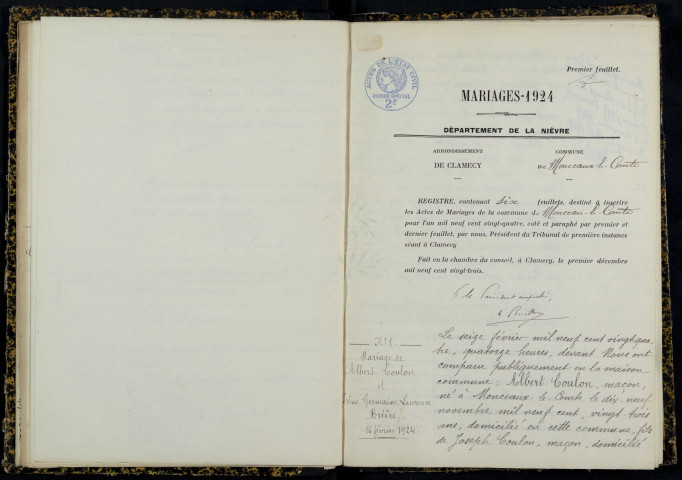 Premier feuillet.
ACTES DE L'ÉTAT CIVIL
PAPIER SPÉCIAL
2F
MARIAGES-1924
DÉPARTEMENT DE LA NIÈVRE
ARRONDISSEMENT
DE CLAMECY
COMMUNE
DE Monceaux-le-Comte
REGISTRE, contenant six feuillets, destiné à inscrire
les Actes de Mariages de la commune de Monceau-le-Comte
pour l'an mil neuf cent vingt-quatre, coté et paraphé par premier et
dernier feuillet, par nous, Président du Tribunal de première instance
séant à Clamecy
Fait en la chambre du conseil, à Clamecy, le premier décembre
mil neuf cent vingt-trois.
le Président
N° 1.
Mariage de
Albert Coulon
et
Germaine Laurence
Brière
16 février 1924.
Le seize février mil neuf cent vingt-qua
tre, quatorze heures, devant Nous ont
comparu publiquement en la maison
commune : Albert Coulon, maçon,
né à Monceaux-le-Comte le dix-neuf
novembre mil neuf cent, vingt trois
ans, domicilié en cette commune, fils
de Joseph Coulon, maçon, domicilié